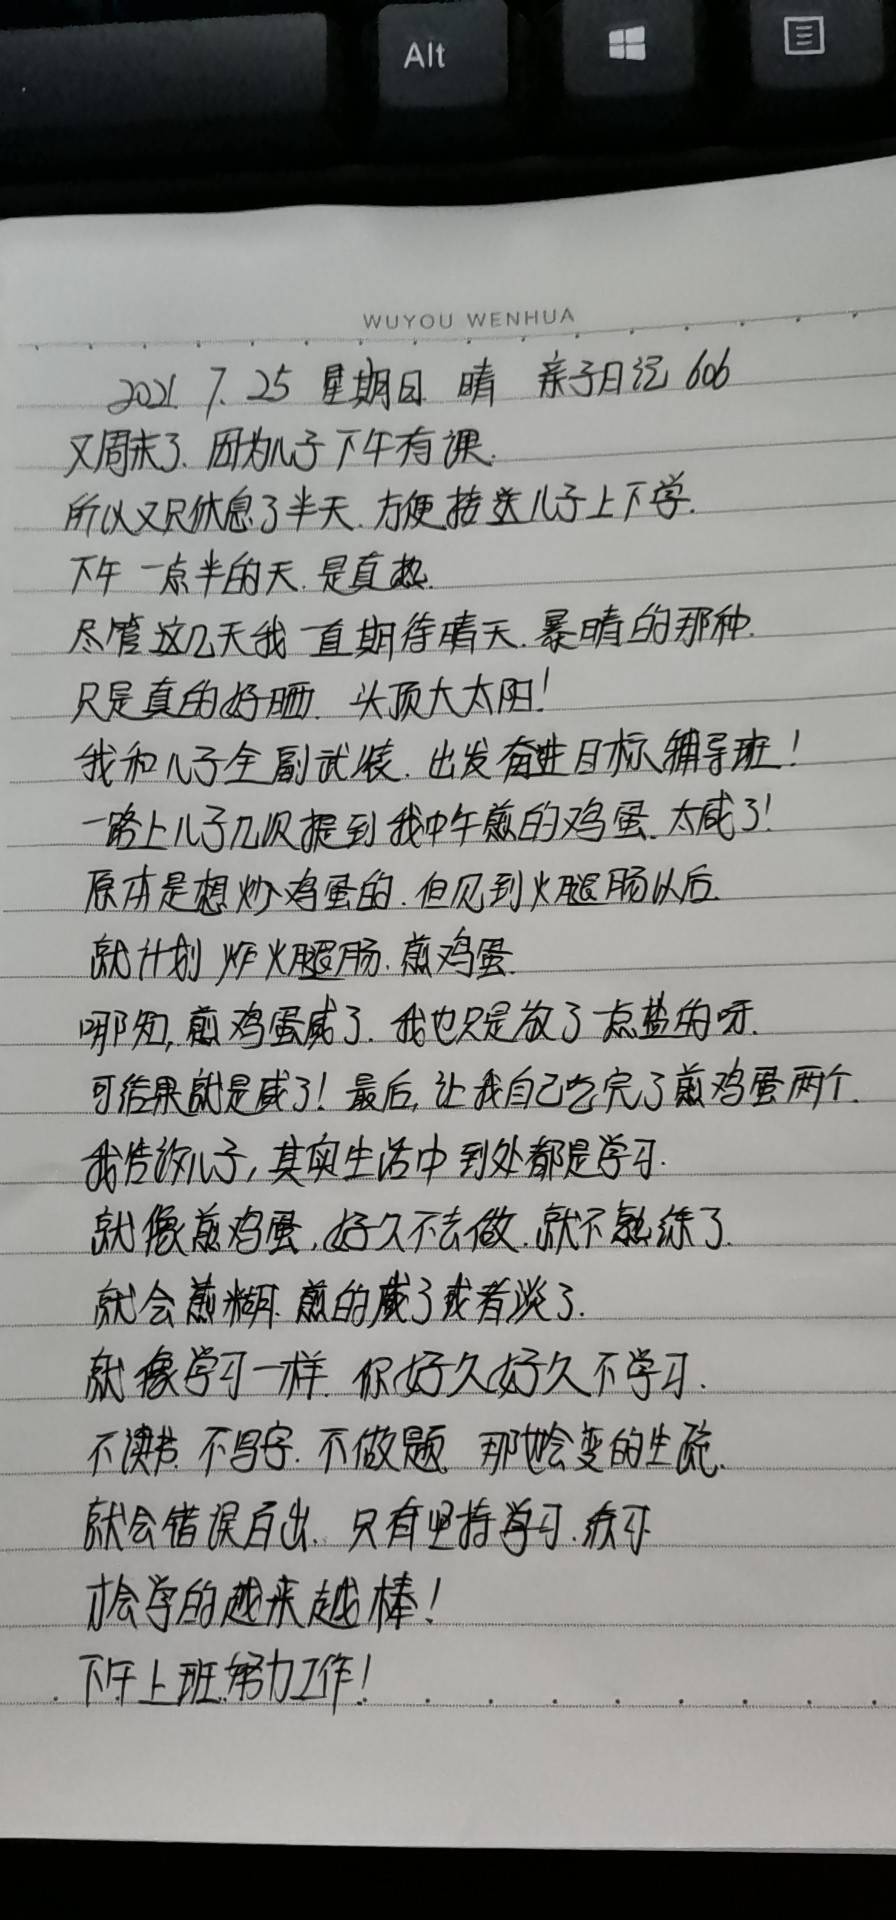 Alt
WUYOU WENHUA
2021. 7. 25 星期日 晴 亲子日记 606
又周末了.因为儿子下午有课.
所以又只休息了半天.方便接送儿子上下学.
下午一点半的天.是真热.
尽管这几天我一直期待晴天.暴晴的那种.
只是真的好晒.头顶大太阳!
我和儿子全副武装.出发奋进目标辅导班!
一路上儿子几次提到我中午煎的鸡蛋.太咸了!
原本是想炒鸡蛋的.但见到火腿肠以后.
就计划炸火腿肠.煎鸡蛋.
哪知,煎鸡蛋咸了.我也只是放了一点盐的呀.
可结果就是咸了!最后,让我自己吃完了煎鸡蛋两个.
我告诉儿子,其实生活中到处都是学习.
就像煎鸡蛋,好久不去做.就不熟练了.
就会煎糊.煎的咸了或者淡了.
就像学习一样.你好久好久不学习.
不读书.不写字.不做题.那也会变的生疏.
就会错误百出.只有坚持学习.练习
才会学的越来越棒!
下午上班.努力工作!